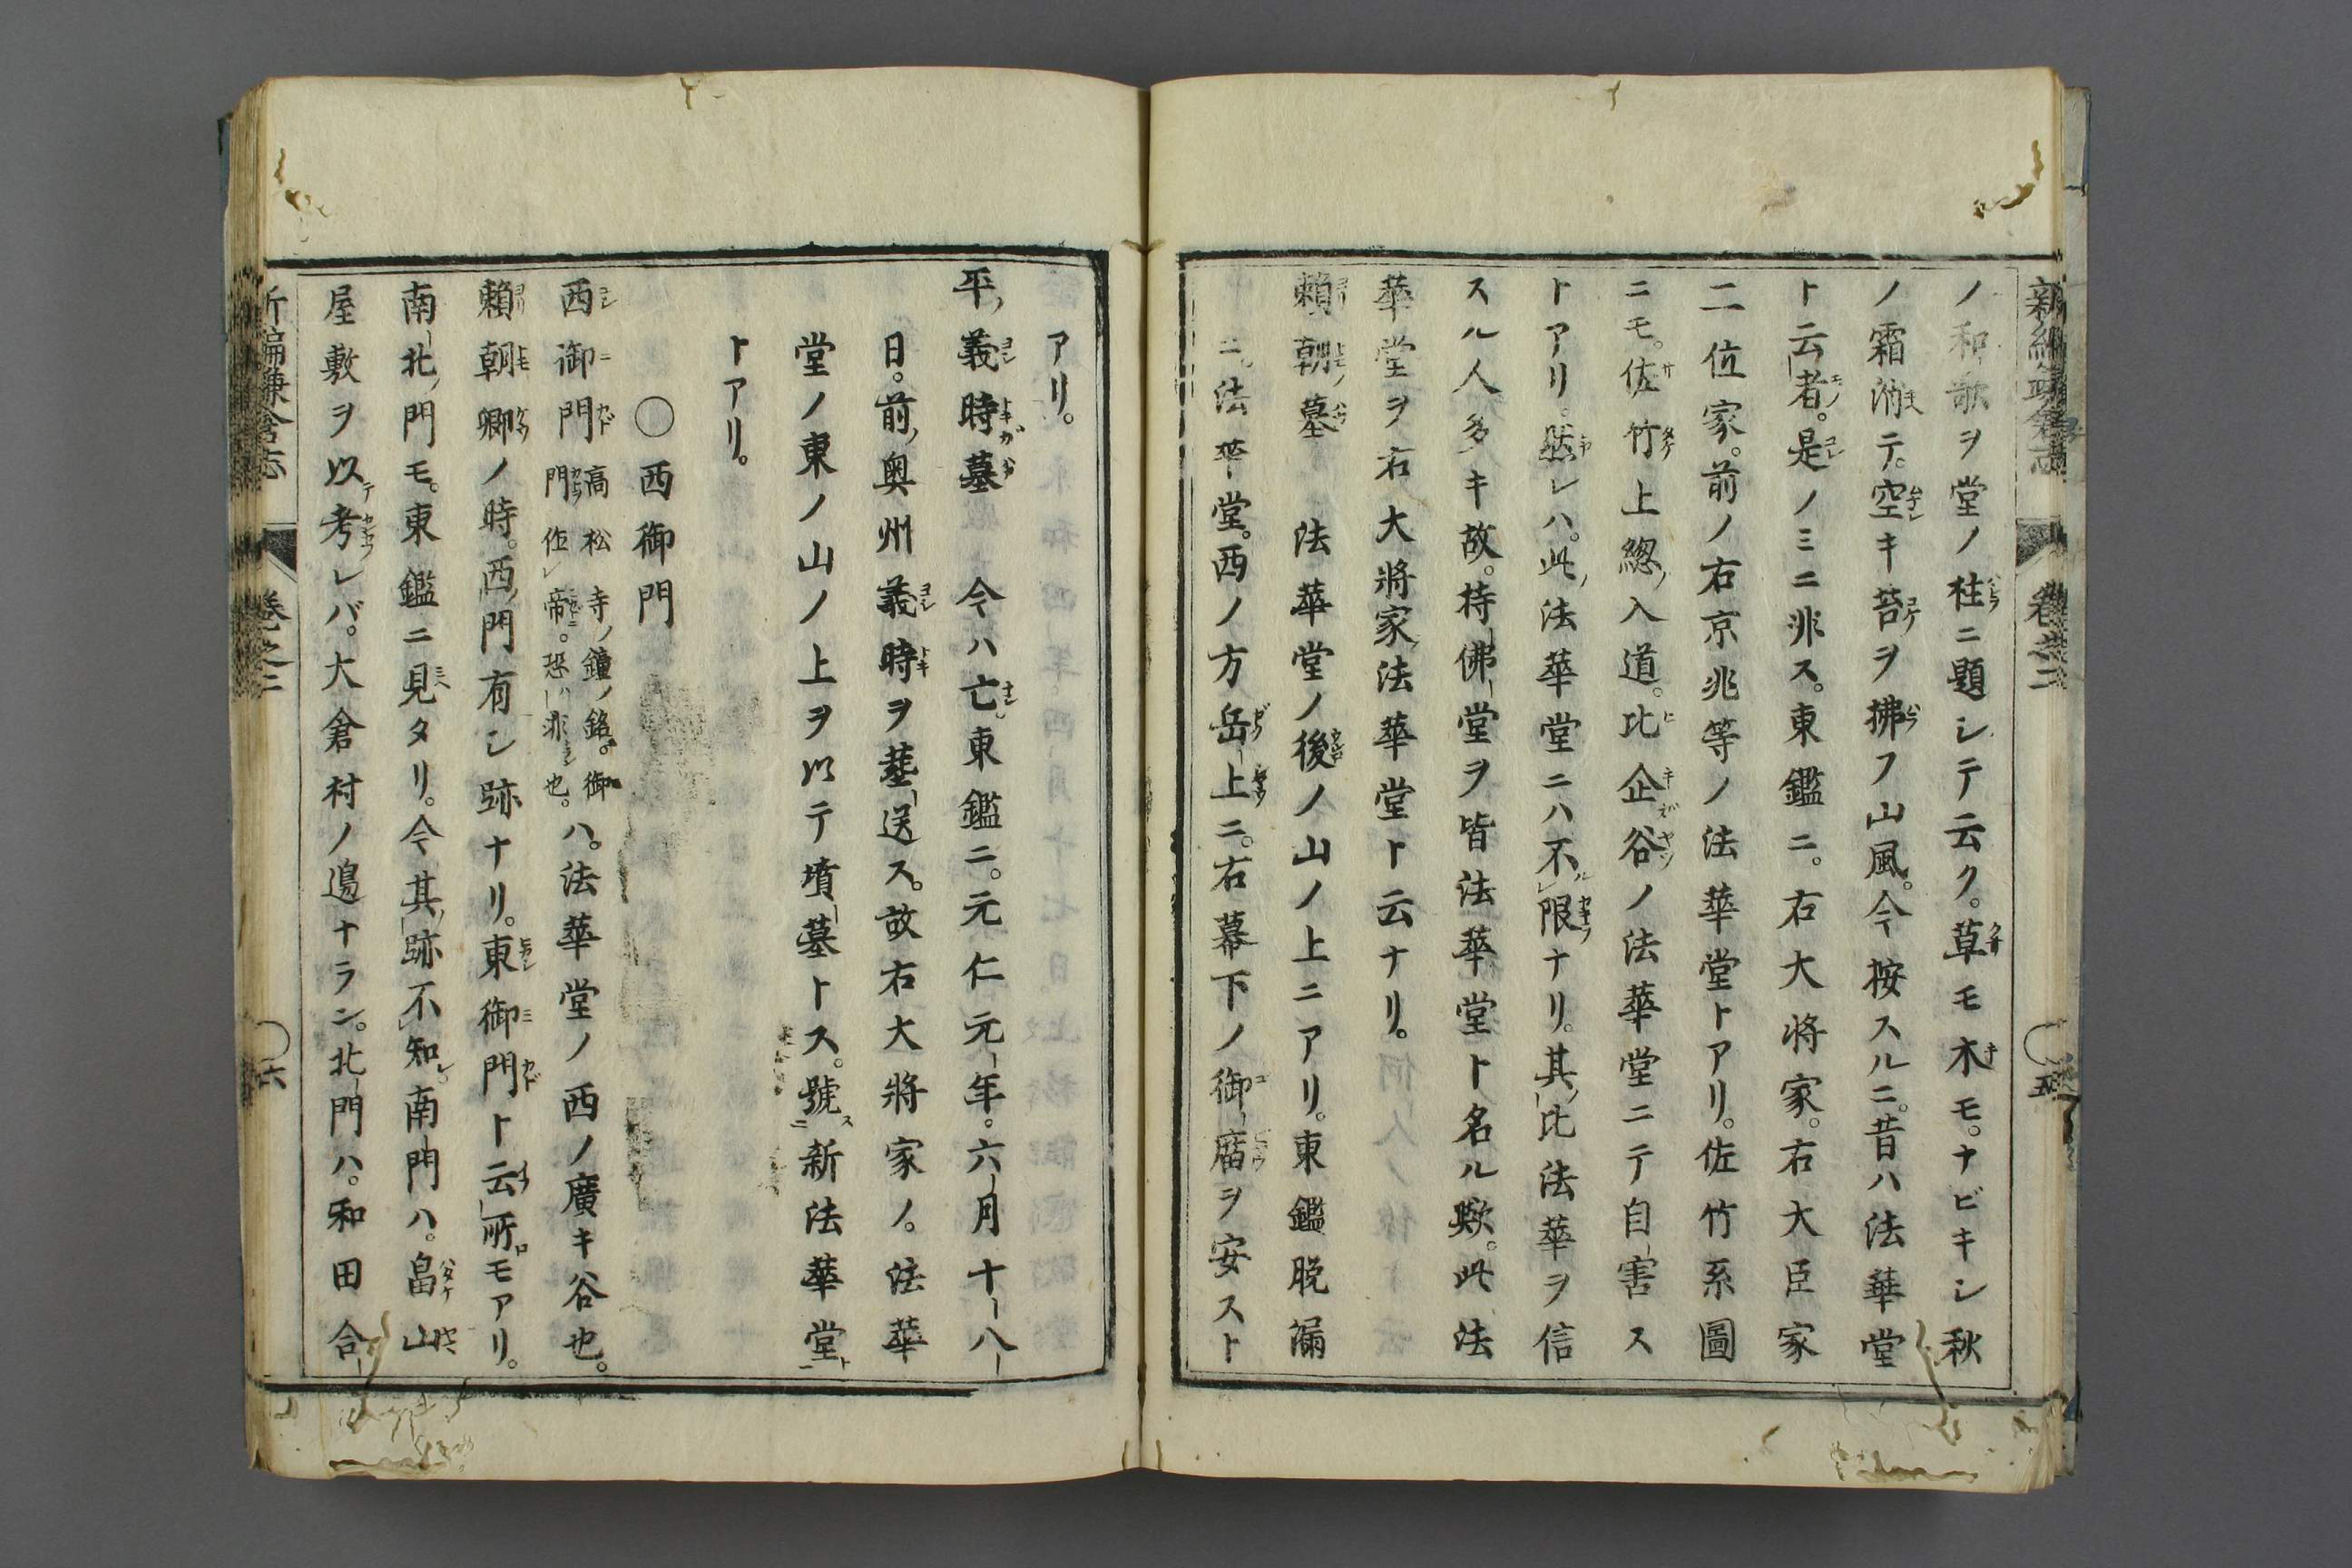 新編鎌倉志 卷之二 〇五
ノ和歌ヲ堂ノ柱ニ題シテ云ク。草モ木モ。ナビキシ秋
ノ霜消テ。空キ苔ヲ拂フ山風。今按スルニ。昔ハ法華堂
ト云者。是ノミニ非ス。東鑑ニ。右大将家。右大臣家
二位家。前ノ右京兆等ノ法華堂トアリ。佐竹系圖
ニモ。佐竹上總ノ入道。比企谷ノ法華堂ニテ自害ス
トアリ。然レハ。此ノ法華堂ニハ不限ナリ。其ノ比法華ヲ信
スル人多キ故。持佛堂ヲ皆法華堂ト名ル歟。此法
華堂ヲ右大將家ノ法華堂ト云ナリ。
賴朝ノ墓 法華堂ノ後ノ山ノ上ニアリ。東鑑脱漏
ニ。法華堂。西ノ方岳上ニ。右幕下ノ御廟ヲ安スト
アリ。
平ノ義時墓 今ハ亡。東鑑ニ。元仁元年。六月十八
日。前ノ奥州義時ヲ葬送ス。故右大將家ノ。法華
堂ノ東ノ山ノ上ヲ以テ墳墓トス。號ス新法華堂ト
トアリ。
〇西御門
西御門 高松寺ノ鐘ノ銘。御門作帝。恐ハ非也。 ハ。法華堂ノ西ノ廣キ谷也。
賴朝卿ノ時。西ノ門有シ跡ナリ。東御門ト云所モアリ。
南北ノ門モ。東鑑ニ見タリ。今其ノ跡不知。南門ハ。畠山
屋敷ヲ以テ考レバ。大倉村ノ邊ナラン。北門ハ。和田合
新編鎌倉志 卷之二 〇六